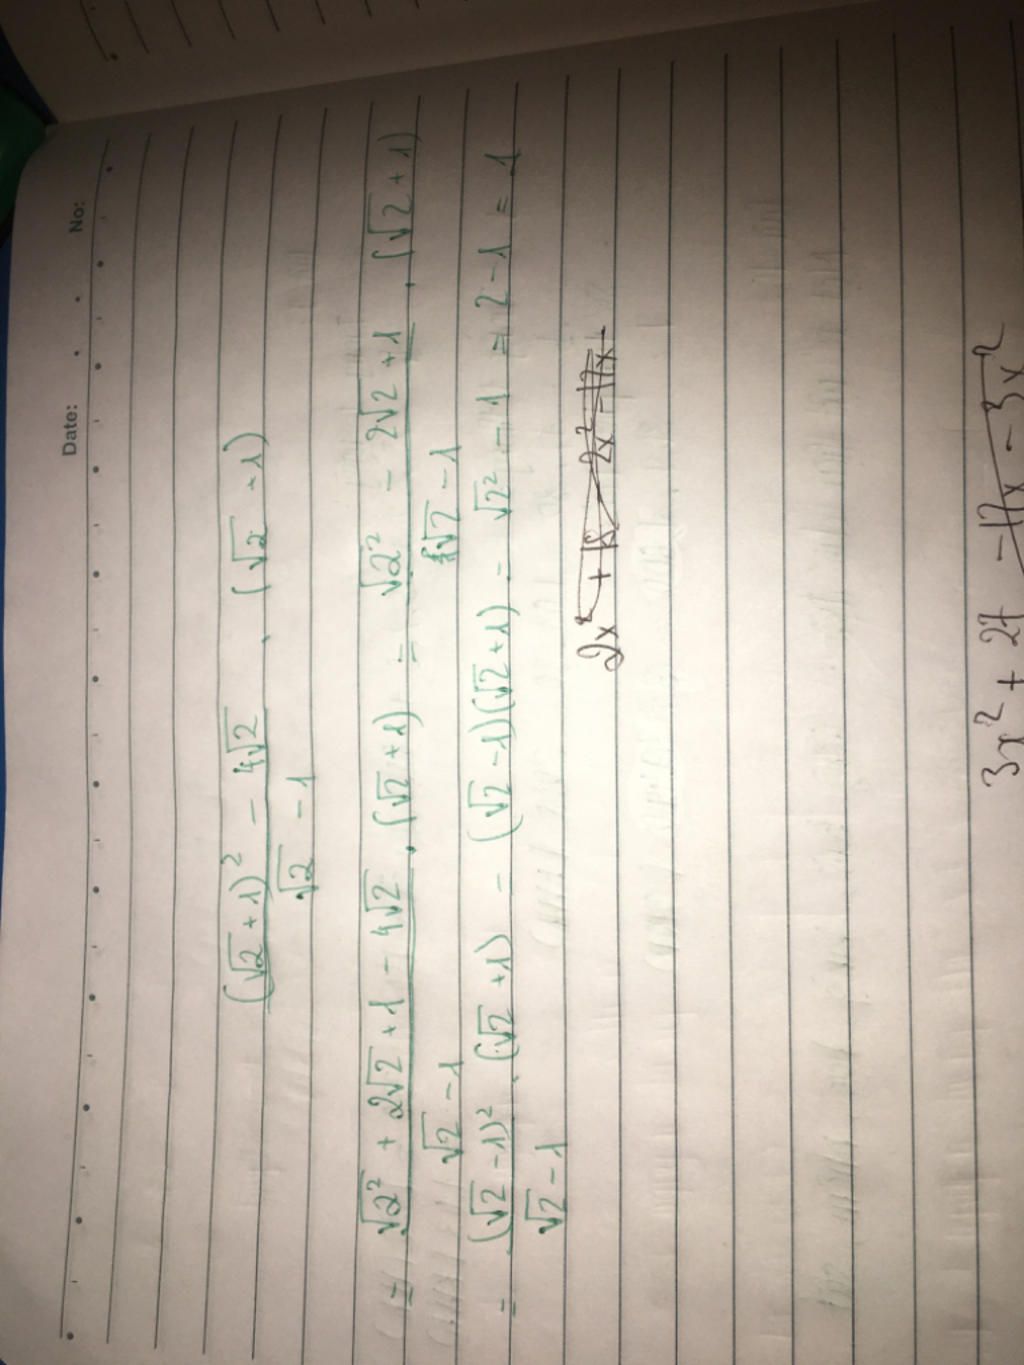 Date: No:
(√2 + 1)² - 4√2 . (√2 + 1)
√2 - 1
= √2² + 2√2 + 1 - 4√2 . (√2 + 1) = √2² - 2√2 + 1 . (√2 + 1)
√2 - 1 √2 - 1
= (√2 - 1)² . (√2 + 1) = (√2 - 1)(√2 + 1) = √2² - 1 = 2 - 1 = 1
√2 - 1
2x² + 18 2x² - 17x
3x² + 27 - 17x - 3x²